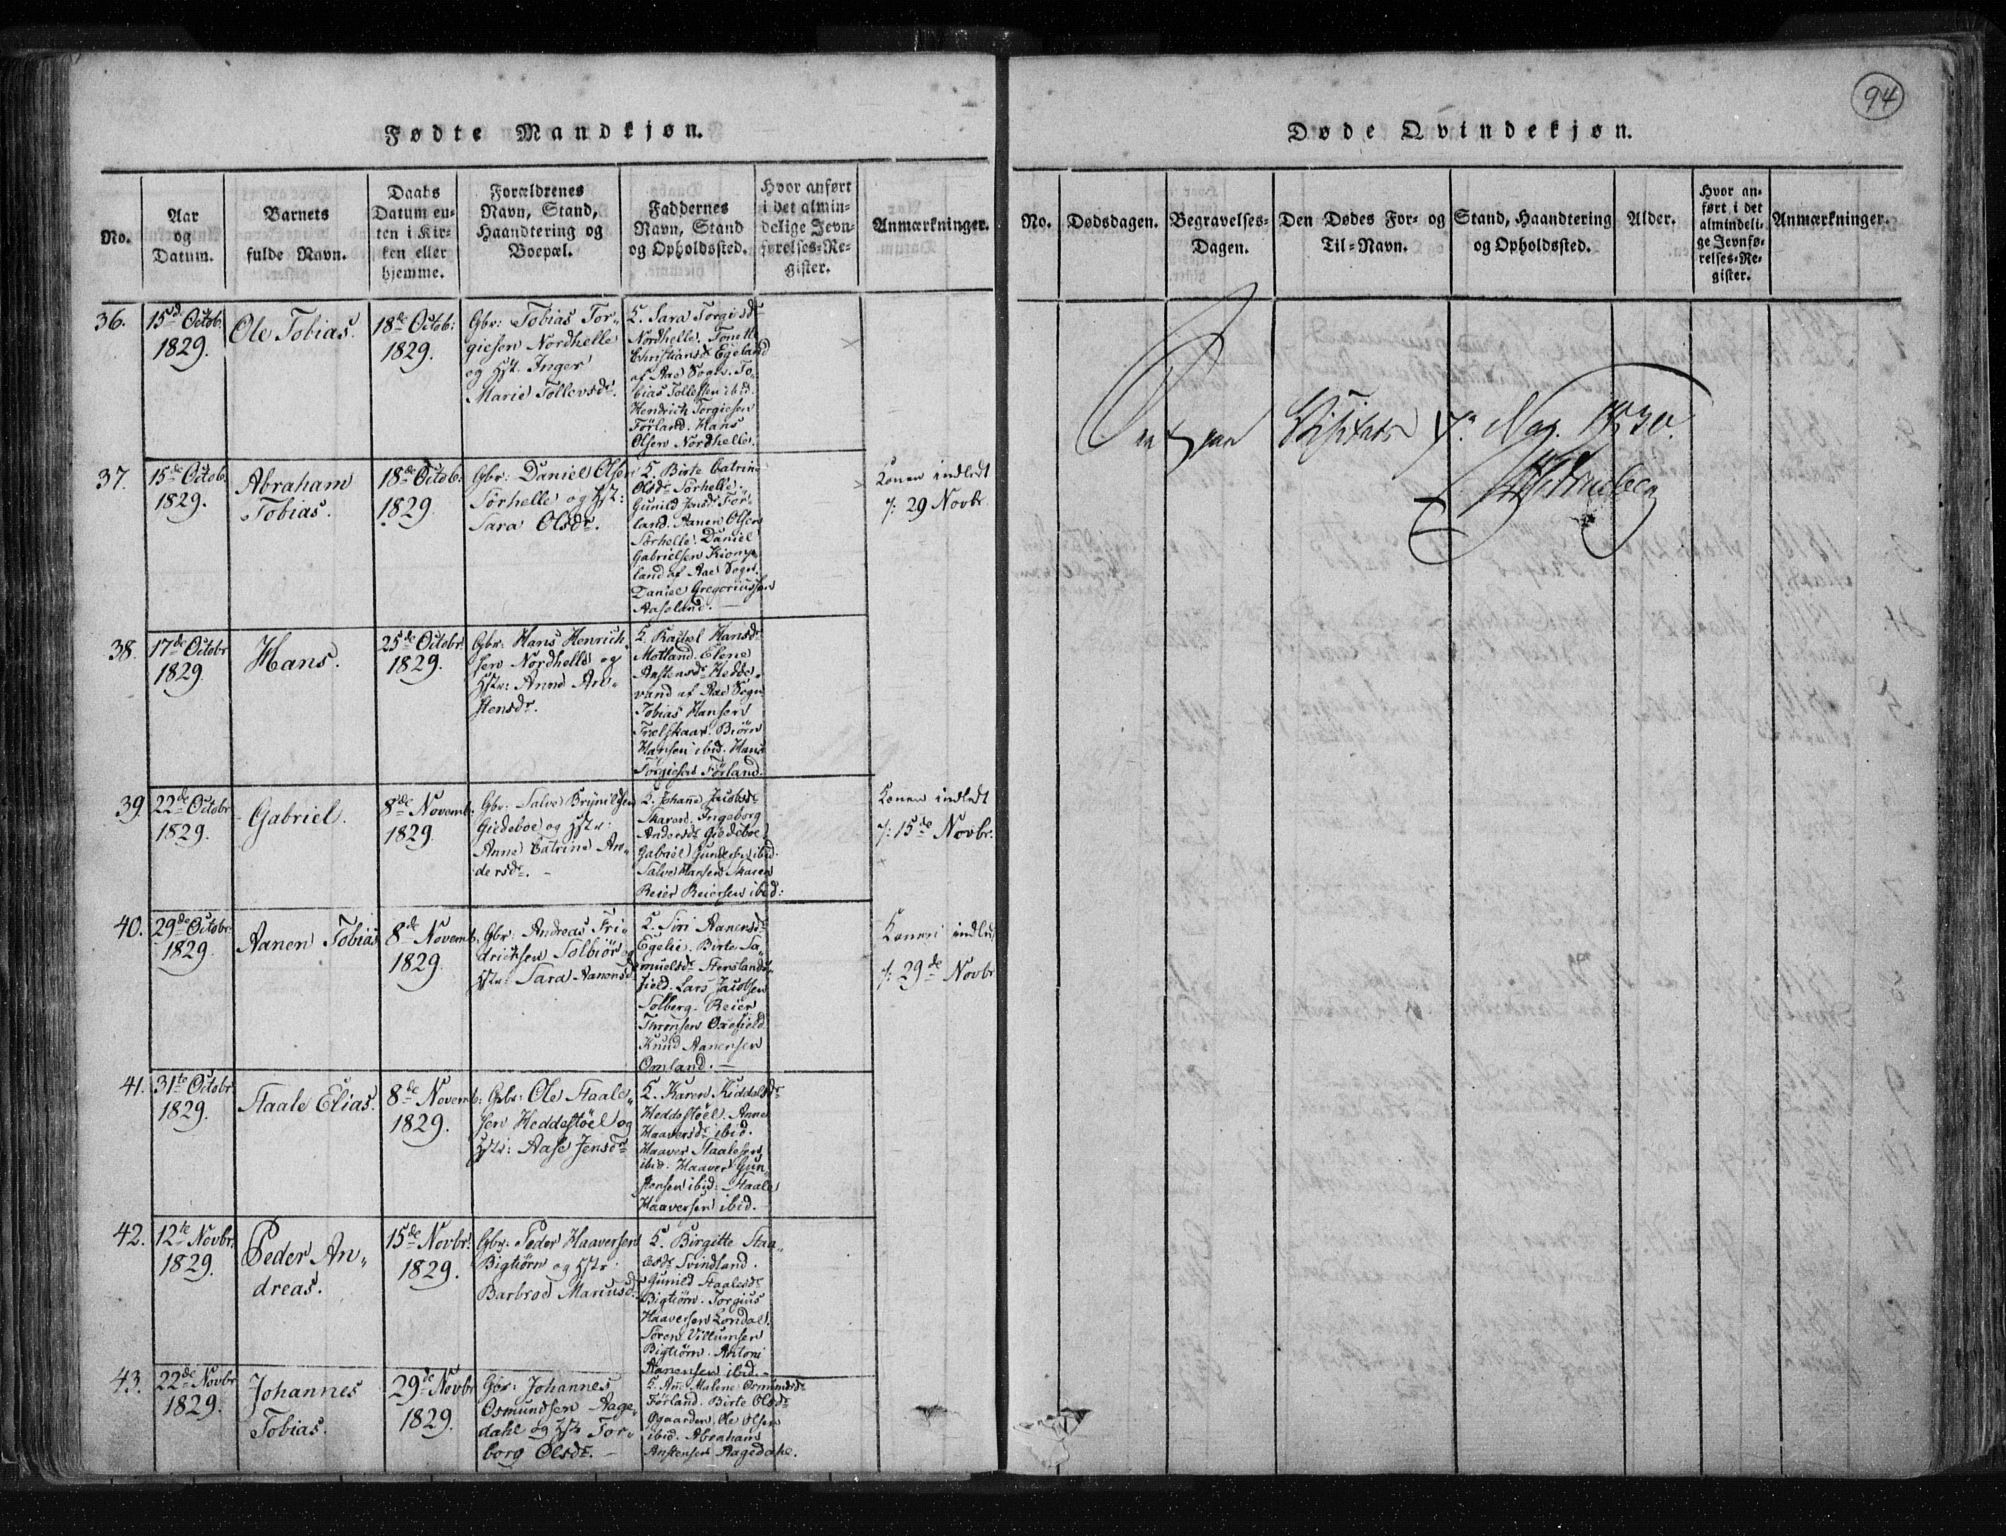 94
Fødte Mandkjøn.
No.
Aar
og
Datum.
Barnets
fulde Navn.
Daabs
Datum en-
ten i Kir-
ken eller
hjemme.
Forældrenes
Navn, Stand,
Haandtering og
Boepæl.
Faddernes
Navn, Stand
og Opholdssted.
Hvor anført
i det almin-
delige Jevn-
førelses-Re-
gister.
Anmærkninger.
36.
15de Octob.
1829.
Ole Tobias.
18de Octob:
1829.
Gbr: Tobias Tor-
giesen Nordhelle
og Hst. Inger
Marie Tollevsdr.
K. Sara Torgiesdr
Nordhelle.
Christiansdr Egeland
af Aae Sogn. To-
bias Tollefsen ibid.
Hendrich Torgiesen
Førland. Hans
Olsen Nordhelle.
37.
15de Octob.
1829.
Abraham
Tobias.
18de Octob.
1829.
Gbr: Daniel Olsen
Sørhelle og Hst:
Sara Olsdr.
K. Birte Catrine
Olsdr Sørhelle.
Gunild Jensdr Før-
land. Aanen Olsen
Sørhelle. Daniel
Gabrielsen
land af Aae Sogn.
Daniel Gregoriussen
Aaseland.
Konen indledt
7: 29 Novbr.
38.
17de Octobr
1829.
Hans.
25de Octobr.
1829.
Gbr: Hans Henrich-
sen Nordhelle og
Hstr: Anne An-
stensdr.
K. Rachel Hansdr
Motland. Elene
Anstensdr Hedde-
vand af Aae Sogn
Tobias Hansen
Trælskaar. Biørn
Hansen ibid. Hans
Torgiesen Førland.
39.
22de Octobr
1829.
Gabriel.
8de Novemb.
1829.
Gbr: Salve Brynilsen
Giedeboe og Hstr:
Anne Catrine An-
dersdr.
K. Johanne Jacobsdr
Skaren. Ingeborg
Andersdr Giedeboe
Gabriel Gundersen ibid.
Salve Hansen Skaren
Reier Reiersen ibid:
Konen indledt
7: 15de Novbr.
40.
29de Octobr.
1829.
Aanen Tobias
8de Novemb.
1829.
Gbr: Andreas Fri-
drichsen Solbiør og
Hstr: Sara Aanensdr
K. Siri Aanensdr
Egelie. Birte Sa-
muelsdr
field. Lars Jacobsen
Solberg. Reier
Thronsen Oxefield.
Knud Aanensen
Omland.
Konen indledt
7: 29de Novbr
41.
31te Octobr.
1829.
Staale Elias.
8de Novemb:
1829.
Gbr: Ole Staale-
sen Heddestøel og
Hstr: Aase Jensdr
K. Karen Kiddelsdr
Heddestøel. Anne
Haaversdr ibid.
Haaver Staalesen
ibid. Haaver Gun-
stensen ibid: Staale
Haaversen ibid.
42.
12te Novbr.
1829.
Peder An-
dreas.
15de Novbr.
1829.
Gbr: Peder Haaversen
Bigtiørn og Hstr
Barbroe Mariusdr
K. Birgitte Staa-
lesdr Svindland.
Gunild Staalesdr
Bigtiørn. Torgius
Haaversen Londal.
Søren Villumsen
Bigtiørn. Antoni
Aanensen ibid.
43.
22de Novbr
1829.
Johannes
Tobias.
29de Novbr
1829.
Gbr: Johannes
Osmundsen Aage-
dahl og Hstr Tor-
borg Olsdr.
K. Ane Malene Osmundsdr
Førland. Birte Olsdr
Øgaarden. Ole Olsen
ibid. Abraham
Anstensen Aagedahl.
Døde Qvindekjøn.
No.
Dødsdagen.
Begravelses-
Dagen.
Den Dødes For- og
Til-Navn.
Stand, Haandtering
og Opholdssted.
Alder.
Hvor an-
ført i det
almindeli-
ge Jevnfø-
relses-Re-
gister.
Anmærkninger.
Visitats 7de May 1830.